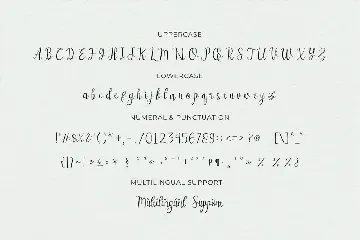 UPPERCASE
A B C D E F G H I J K L M N O P Q R S T U V W X Y Z
LOWERCASE
a b c d e f g h i j k l m n o p q r s t u v w x y z
NUMERAL & PUNCTUATION
0123456789
MULTILINGUAL SUPPORT
Multilingual Support